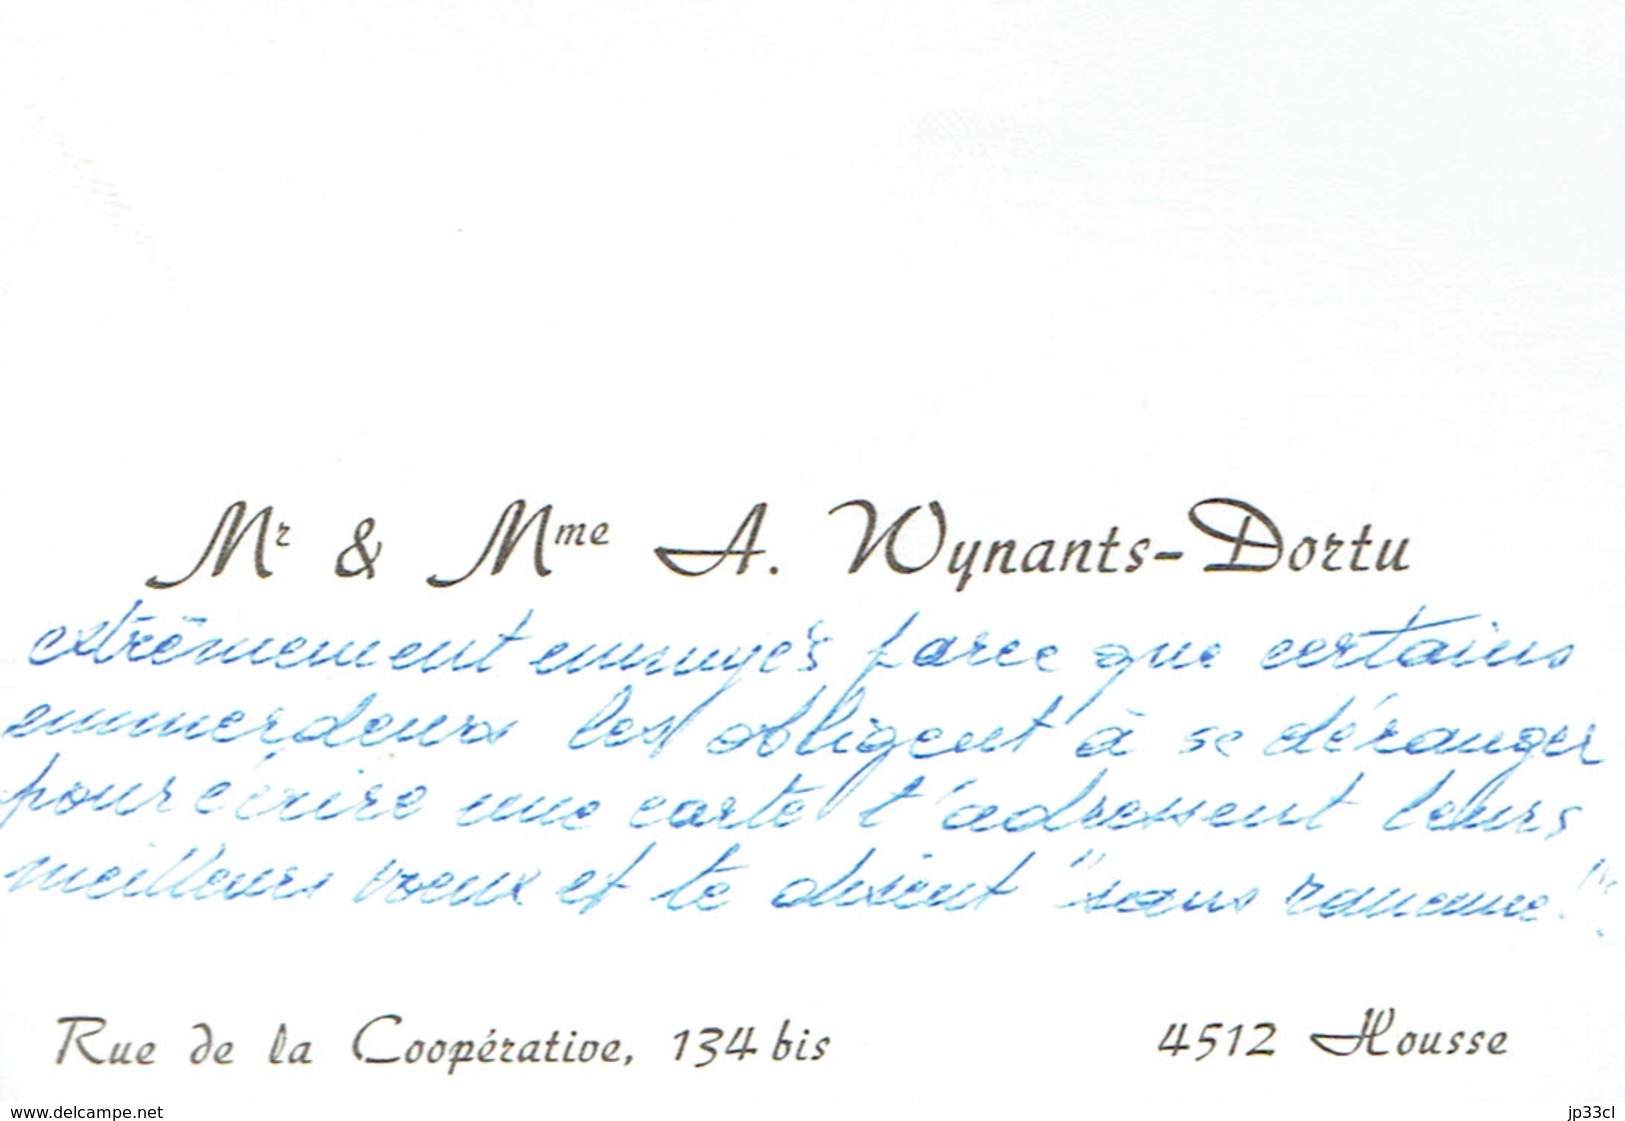 Mr & Mme A. Wynants-Dortu
extrêmement ennuyés parce que certains
emmerdeurs les obligent à se déranger
pour écrire une carte t'adressent leurs
meilleurs voeux et te disent "sans rancune!"
Rue de la Coopérative, 134 bis 4512 Housse
www.delcampe.net jp33cl